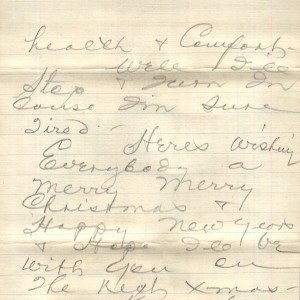 health & Comfort-
Well I'le
Stop & Turn In
Cause I'm Sure
Tired -
Heres wishing
Everybody a
Merry Merry
Christmas &
Happy New Years
& Hope I'le be
with you on
The Next Xmas-